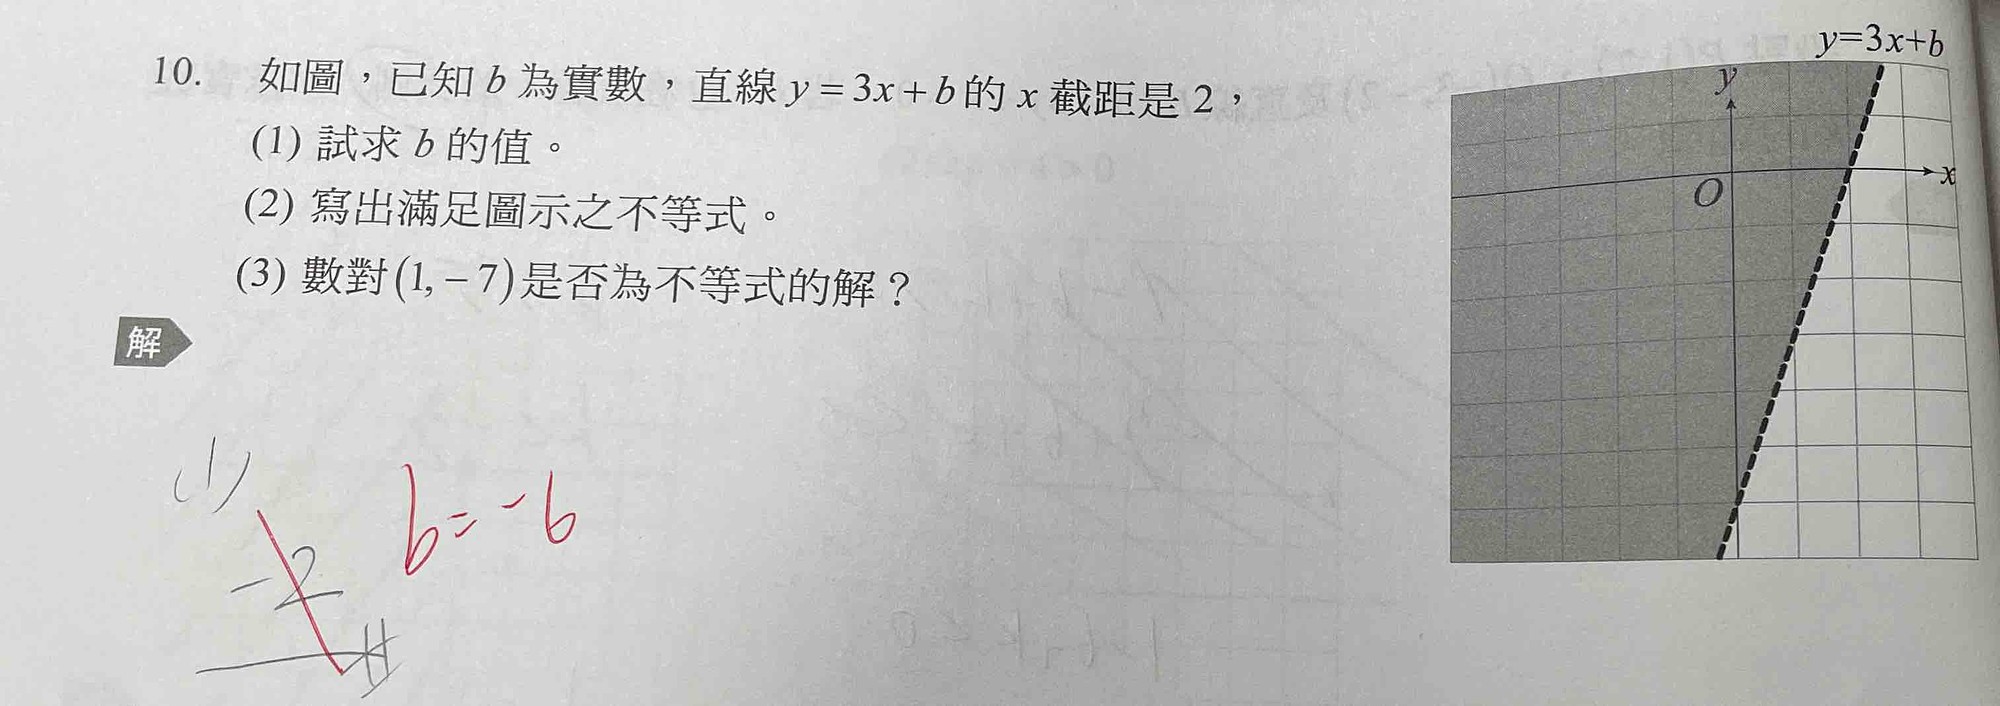 10. 如圖，已知 b 為實數，直線 y = 3x + b 的 x 截距是 2，
(1) 試求 b 的值。
(2) 寫出滿足圖示之不等式。
(3) 數對 (1, − 7) 是否為不等式的解？
解
(1)
-2
b = -6
y=3x+b
y
x
O